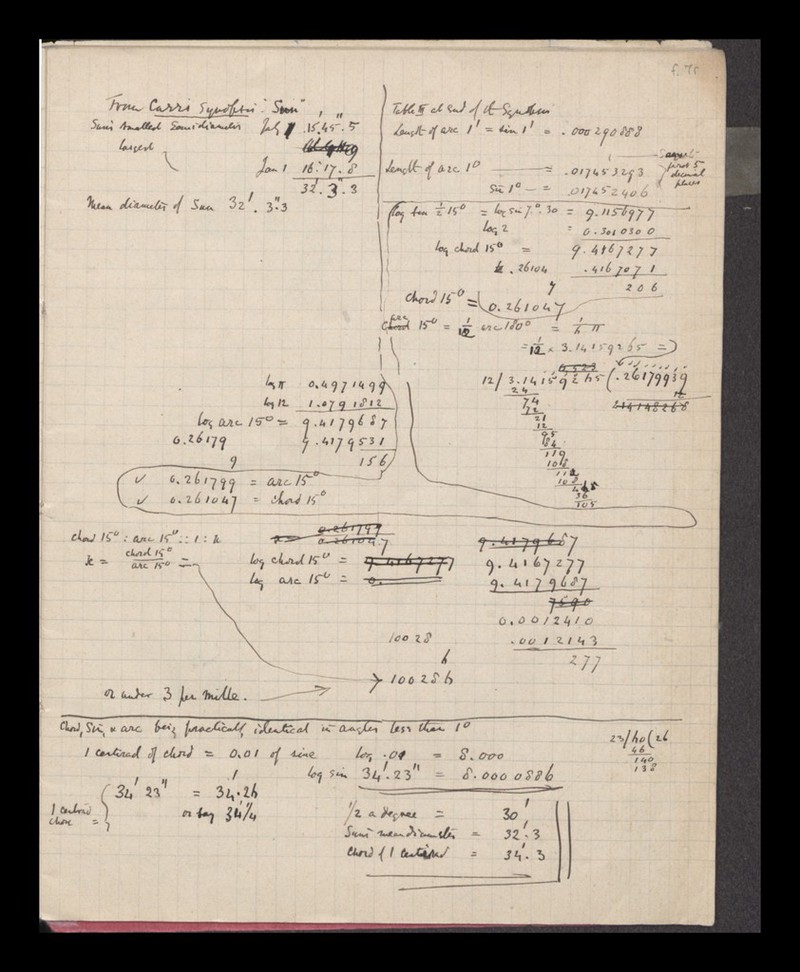 f. 75
From Carr's Synopsis "Sun"
Sun's smallest Semidiameter July 1 15.45".5
largest
Jan 1 16:17.8
32'.3".3
Mean diameter of Sun 32'. 3".3
Table II at end of
Length of arc 1' = sin 1' = .000290888
Length of arc 1° = .017453293
sin 1° = .017452406
Same to first 5 decimal places
log sin 7°.30 = 9.1156977
log 2 = 0.3010300
log chord 15° = 9.4167277
.26104 .4167071
7 206
chord 15° = 0.261047
arc 15° = 1/12 arc 180° = 1/12 π
= 1/12 × 3.14159265 =
12/3.14159265(.26179939
24
74
72
21
12
95
84
119
108
112
108
46
36
105
log π 0.4971499
log 12 1.0791812
log arc 15° = 9.4179687
0.26179 9.4179531
9 156
✓ 0.261799 = arc 15°
✓ 0.261047 = chord 15°
chord 15° : arc 15° :: 1 : x
x = chord 15° / arc 15° =
log chord 15° =
log arc 15° =
9.4167277
9.4179687
0.0012410
10028 .0012143
6 277
100286
or under 3 per mille.
Chord, Sin, & arc being practically identical in angles less than 1°
1 centirad of chord = 0.01 of sine log .01 = 8.000
log sin 34'.23" = 8.0000886
23/60(26
46
140
138
34' 23" = 34'.26
or say 34'1/4
1 centirad chord =
1/2 a degree = 30'
Sun's mean diameter = 32'.3
Chord of 1 centirad = 34'.3